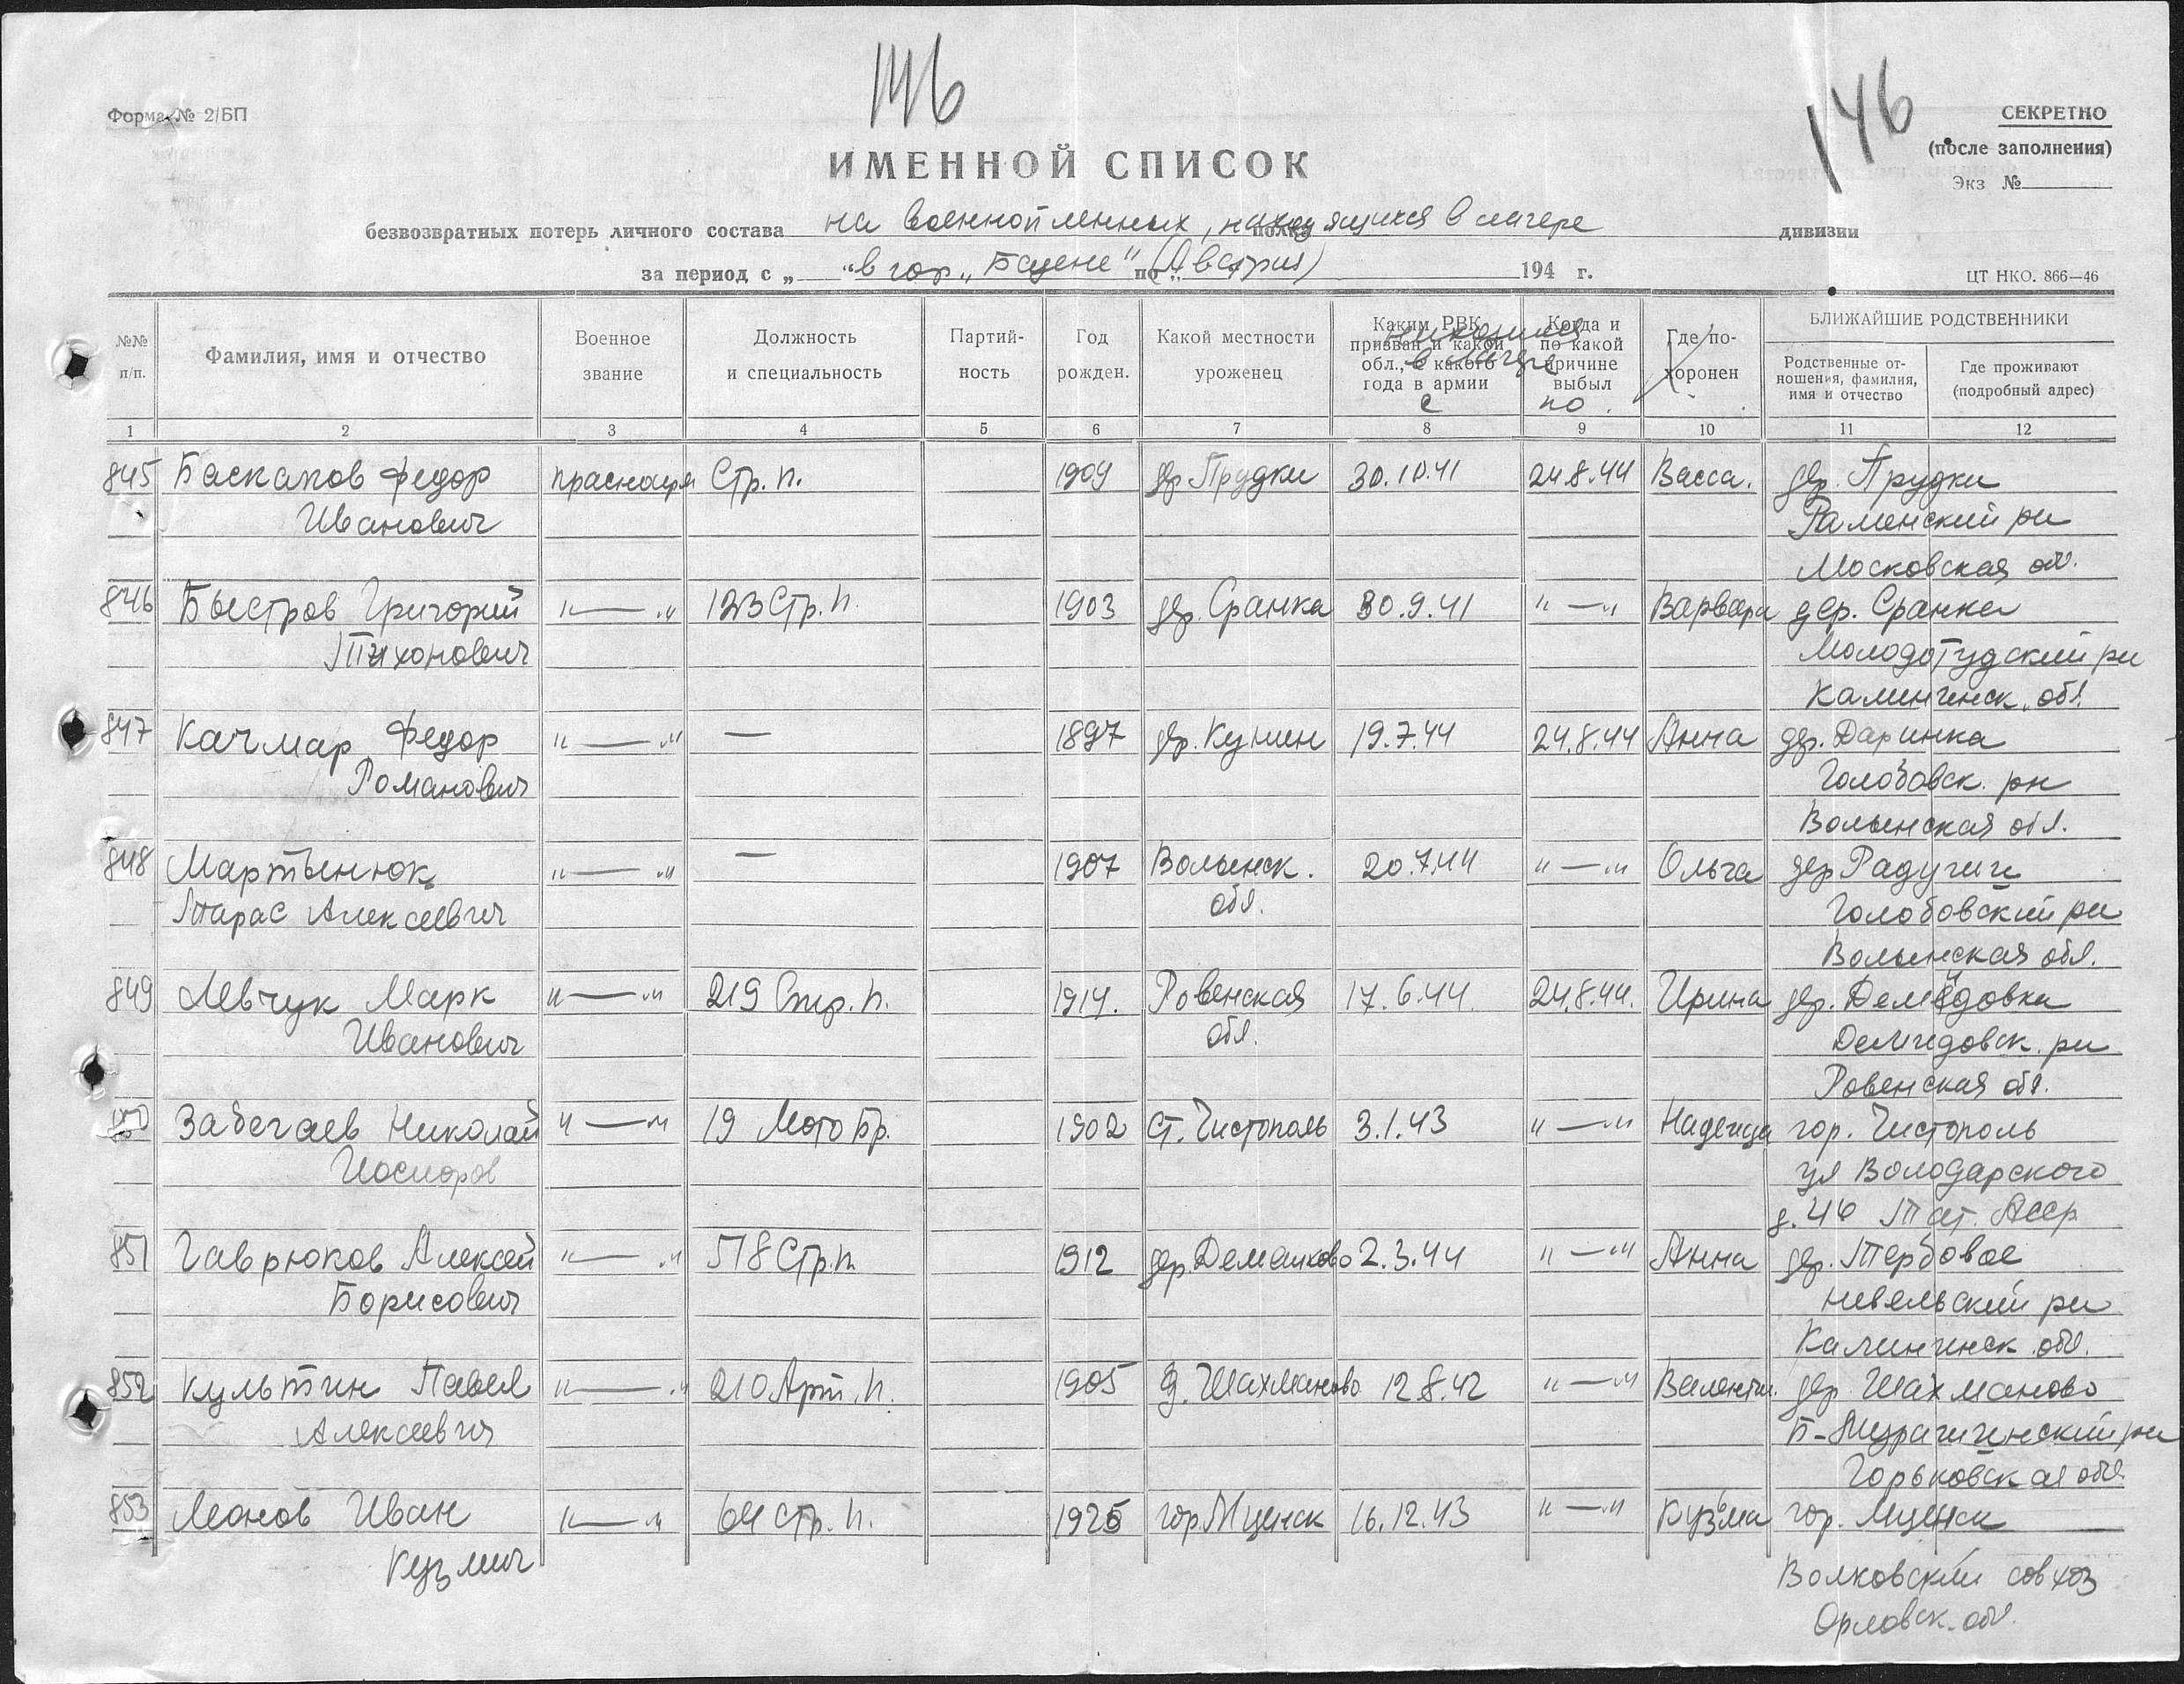 146
146
Форма № 2/БП
СЕКРЕТНО
(после заполнения)
Экз №
ИМЕННОЙ СПИСОК
безвозвратных потерь личного состава на военнопленных, находящихся в лагере дивизии
за период с „ “ в гор. „Бацене“ по (Австрия) 194 г.
ЦТ НКО. 866—46
№№ п/п.
Фамилия, имя и отчество
Военное звание
Должность и специальность
Партийность
Год рожден.
Какой местности уроженец
Каким РВК призван и какой обл., с какого года в армии
с
Когда и по какой причине выбыл
по
в лагере
Где похоронен
БЛИЖАЙШИЕ РОДСТВЕННИКИ
Родственные отношения, фамилия, имя и отчество
Где проживают (подробный адрес)
1 2 3 4 5 6 7 8 9 10 11 12
845 Баскаков Федор Стр. п. 1909 дер. Прудки 30.10.41 24.8.44 Васса. дер. Прудки
Иванович Раменский рн
Московская обл.
846 Быстров Григорий "—" 123 Стр. п. 1903 дер. Сранка 30.9.41 "—" Варвара дер. Сранка
Тихонович Молодотудский рн
Калининск. обл.
847 Качмар Федор "—" — 1897 дер. Кунин 19.7.44 24.8.44 Анна дер. Даринка
Романович Голобовск. рн
Волынская обл.
848 Мартынюк "—" — 1907 Волынск. 20.7.44 "—" Ольга дер. Радугин
Тарас Алексеевич обл. Голобовский рн
Волынская обл.
849 Левчук Марк "—" 219 Стр. п. 1914. Ровенская 17.6.44. 24.8.44. Ирина дер. Демидовка
Иванович обл. Демидовск. рн
Ровенская обл.
850 Забегаев Николай "—" 19 Мото Бр. 1902 Ст. Чистополь 3.1.43 "—" Надежда гор. Чистополь
ул Володарского
д. 46 Тат. Асср
851 Гаврюков Алексей "—" 518 Стр. п. 1912 дер. Демешково 2.3.44 "—" Анна дер. Тербовое
Борисович Невельский рн
Калининск. обл.
852 Культин Павел "—" 210 Арт. п. 1905 д. Шахманово 12.8.42 "—" Валентин. дер. Шахманово
Алексеевич Б-Мурашинский рн
Горьковская обл.
853 Леонов Иван "—" 64 стр. п. 1925 гор. Мценск 16.12.43 "—" Кузьма гор. Мценск
Кузмич Волковский совхоз
Орловск. обл.